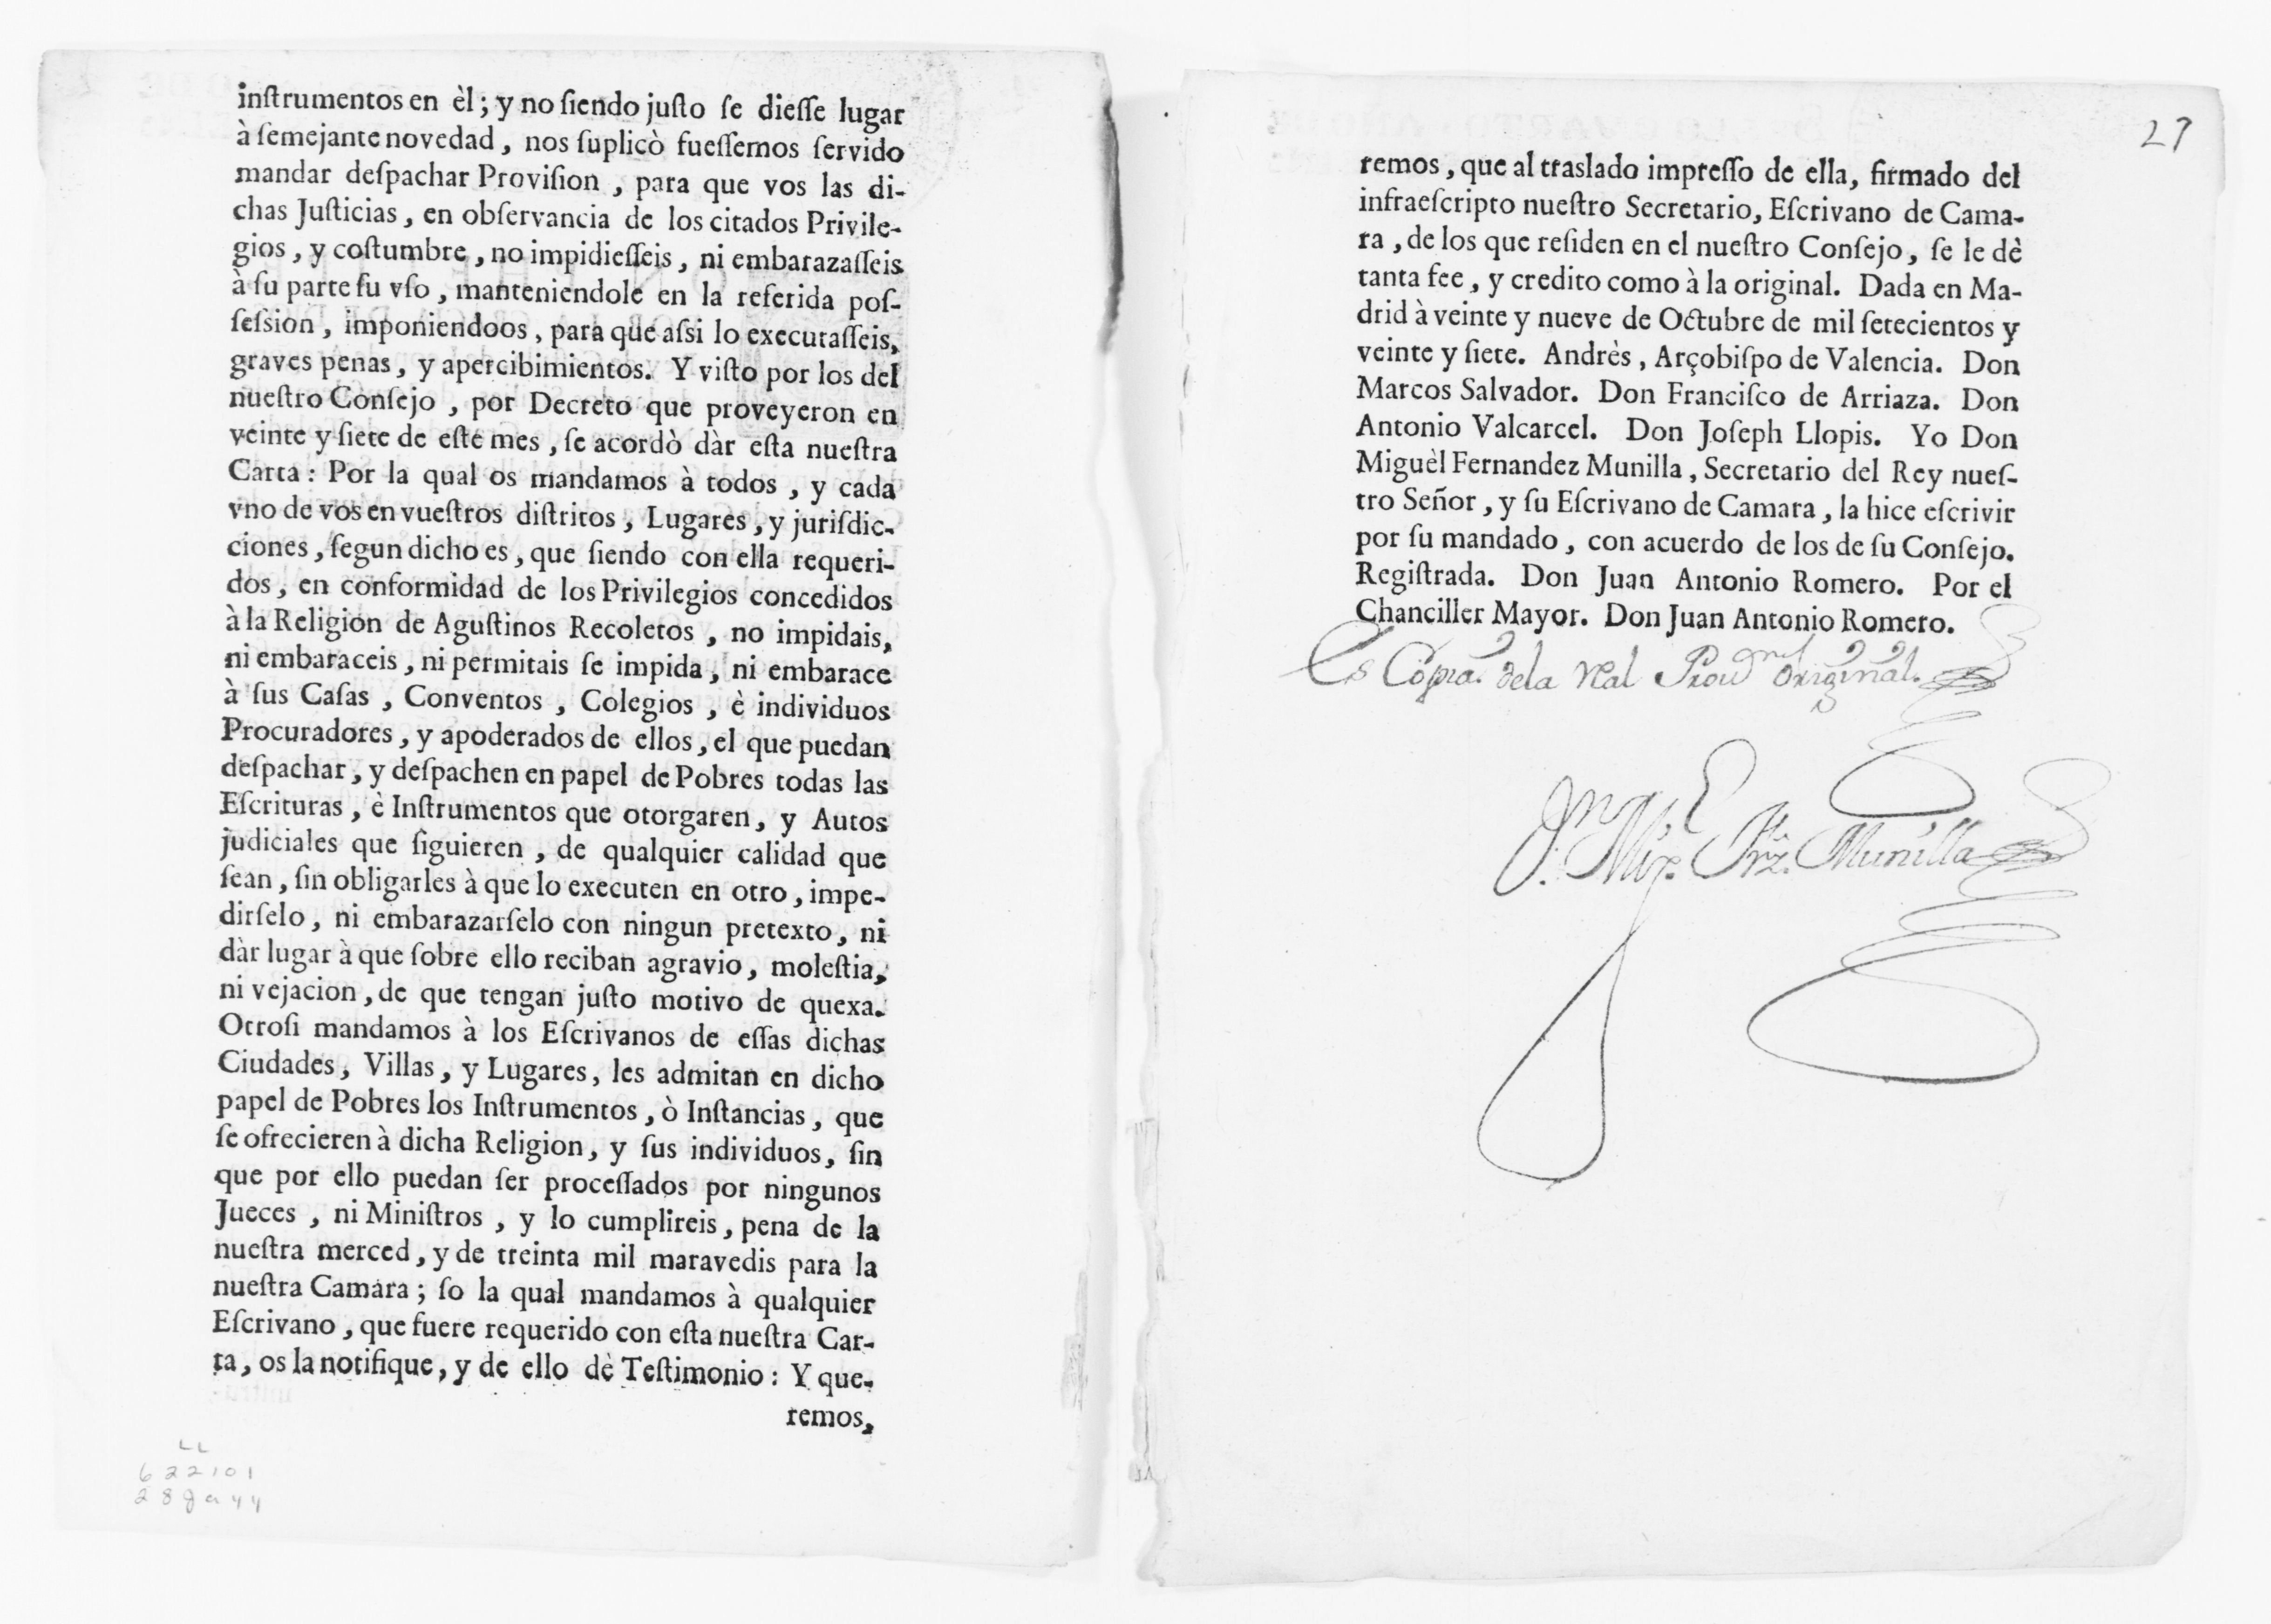 inſtrumentos en èl; y no ſiendo juſto ſe dieſſe lugar
à ſemejante novedad, nos ſuplicò fueſſemos ſervido
mandar deſpachar Proviſion, para que vos las di-
chas Juſticias, en obſervancia de los citados Privile-
gios, y coſtumbre, no impidieſſeis, ni embarazaſſeis
à ſu parte ſu vſo, manteniendole en la referida poſ-
ſeſsion, imponiendoos, para que aſsi lo executaſſeis,
graves penas, y apercibimientos. Y viſto por los del
nueſtro Conſejo, por Decreto que proveyeron en
veinte y ſiete de eſte mes, ſe acordò dàr eſta nueſtra
Carta: Por la qual os mandamos à todos, y cada
vno de vos en vueſtros diſtritos, Lugares, y juriſdic-
ciones, ſegun dicho es, que ſiendo con ella requeri-
dos, en conformidad de los Privilegios concedidos
à la Religion de Aguſtinos Recoletos, no impidais,
ni embaraceis, ni permitais ſe impida, ni embarace
à ſus Caſas, Conventos, Colegios, è individuos
Procuradores, y apoderados de ellos, el que puedan
deſpachar, y deſpachen en papel de Pobres todas las
Eſcrituras, è Inſtrumentos que otorgaren, y Autos
judiciales que ſiguieren, de qualquier calidad que
ſean, ſin obligarles à que lo executen en otro, impe-
dirſelo, ni embarazarſelo con ningun pretexto, ni
dàr lugar à que ſobre ello reciban agravio, moleſtia,
ni vejacion, de que tengan juſto motivo de quexa.
Otroſi mandamos à los Eſcrivanos de eſſas dichas
Ciudades, Villas, y Lugares, les admitan en dicho
papel de Pobres los Inſtrumentos, ò Inſtancias, que
ſe ofrecieren à dicha Religion, y ſus individuos, ſin
que por ello puedan ſer proceſſados por ningunos
Jueces, ni Miniſtros, y lo cumplireis, pena de la
nueſtra merced, y de treinta mil maravedis para la
nueſtra Camara; ſo la qual mandamos à qualquier
Eſcrivano, que fuere requerido con eſta nueſtra Car-
ta, os la notifique, y de ello dè Teſtimonio: Y que-
remos,
LL
622101
28ga44
27
remos, que al traslado impreſſo de ella, firmado del
infraeſcripto nueſtro Secretario, Eſcrivano de Cama-
ra, de los que reſiden en el nueſtro Conſejo, ſe le dè
tanta fee, y credito como à la original. Dada en Ma-
drid à veinte y nueve de Octubre de mil ſetecientos y
veinte y ſiete. Andrès, Arçobiſpo de Valencia. Don
Marcos Salvador. Don Franciſco de Arriaza. Don
Antonio Valcarcel. Don Joſeph Llopis. Yo Don
Miguèl Fernandez Munilla, Secretario del Rey nueſ-
tro Señor, y ſu Eſcrivano de Camara, la hice eſcrivir
por ſu mandado, con acuerdo de los de ſu Conſejo.
Regiſtrada. Don Juan Antonio Romero. Por el
Chanciller Mayor. Don Juan Antonio Romero.
Es Copia dela Real Prouon original.
Dn. Migl. Frz. Munilla